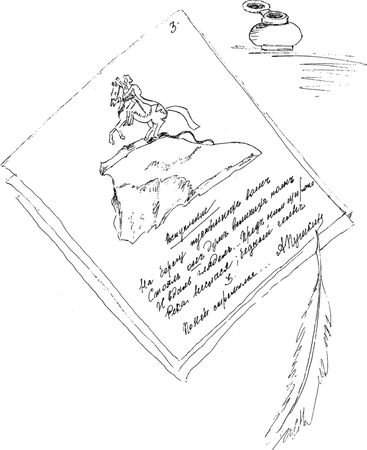 3.
Вступление
На берегу пустынныхъ волнъ
Стоялъ онъ думъ великихъ полнъ
И вдаль гляделъ. Предъ нимъ широко
Река неслася; бедный челнъ
3.
По ней стремился... А Пушкин